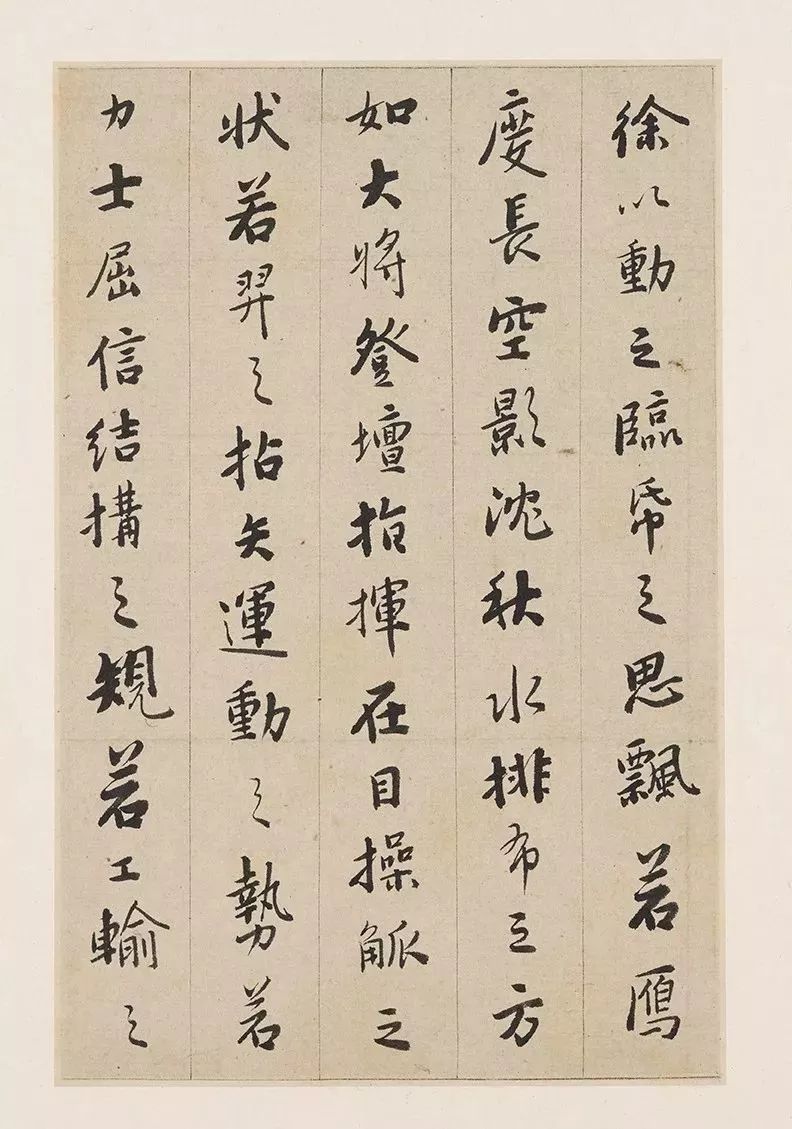 徐以動之臨帋之思飄若鴈
度長空影沈秋水排布之方
如大將登壇指揮在目操觚之
狀若羿之拈矢運動之勢若
力士屈信結搆之規若工輸之